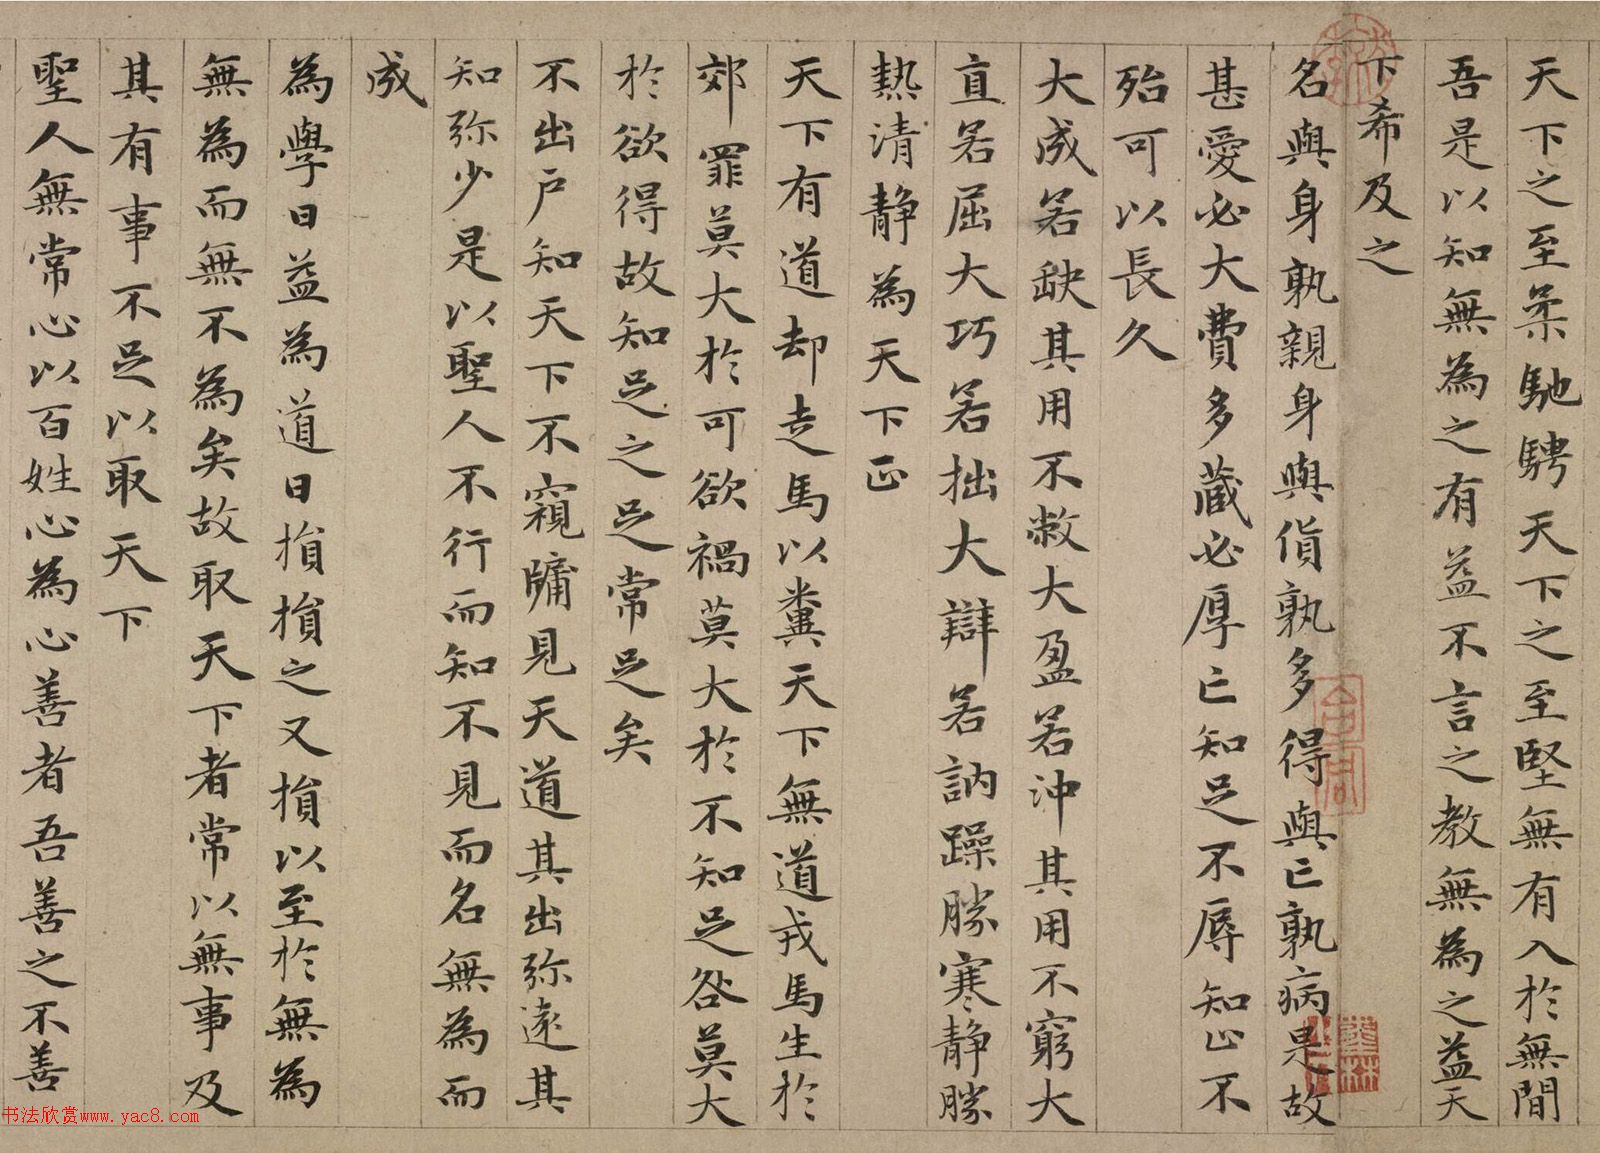 天下之至柔馳騁天下之至堅無有入於無間
吾是以知無為之有益不言之教無為之益天
下希及之
名與身孰親身與貨孰多得與亡孰病是故
甚愛必大費多藏必厚亡知足不辱知止不
殆可以長久
大成若缺其用不敝大盈若沖其用不窮大
直若屈大巧若拙大辯若訥躁勝寒静勝
熱清静為天下正
天下有道却走馬以糞天下無道戎馬生於
郊罪莫大於可欲禍莫大於不知足咎莫大
於欲得故知足之足常足矣
不出户知天下不窺牖見天道其出弥遠其
知弥少是以聖人不行而知不見而名無為而
成
為學日益為道日損損之又損以至於無為
無為而無不為矣故取天下者常以無事及
其有事不足以取天下
聖人無常心以百姓心為心善者吾善之不善
书法欣赏www.yac8.com